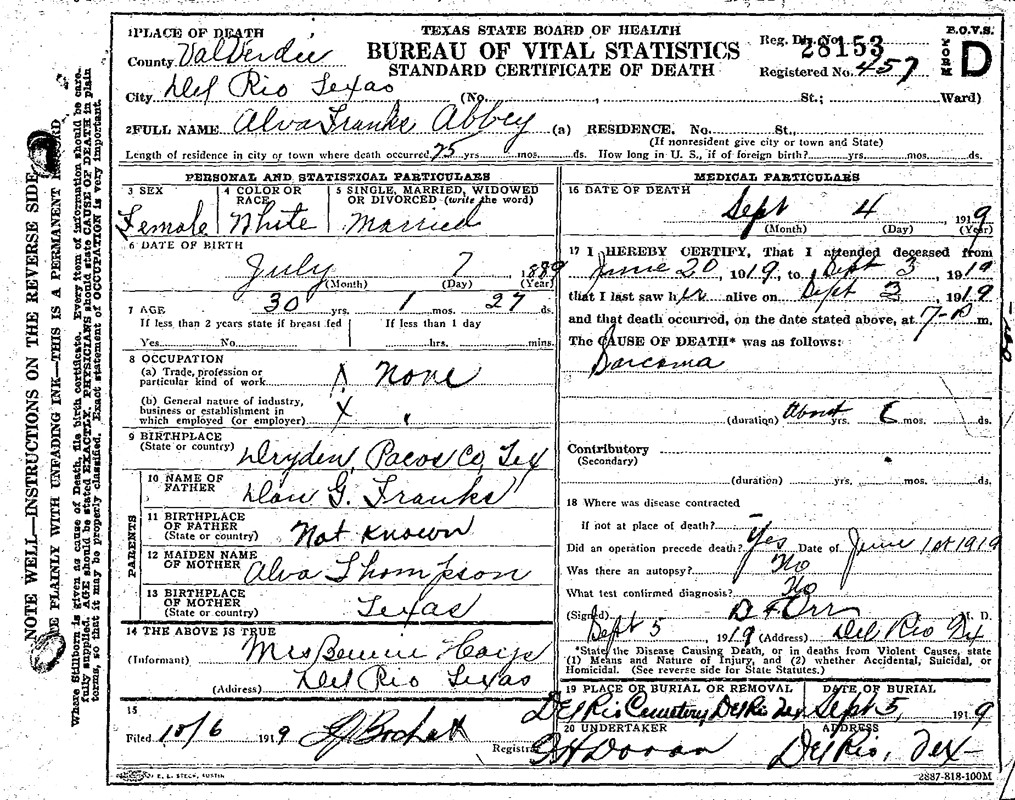 NOTE WELL—INSTRUCTIONS ON THE REVERSE SIDE
PLAINLY WITH UNFADING INK—THIS IS A PERMANENT RECORD
Where Stillborn is given as cause of Death, file birth certificate. Every item of information should be care-
fully supplied. AGE should be stated EXACTLY. PHYSICIANS should state CAUSE OF DEATH in plain
terms, so that it may be properly classified. Exact statement of OCCUPATION is very important
1 PLACE OF DEATH
County Val Verde
TEXAS STATE BOARD OF HEALTH
BUREAU OF VITAL STATISTICS
STANDARD CERTIFICATE OF DEATH
Reg. Dis. No. 28153
Registered No. 457
B.O.V.S.
D
City Del Rio Texas (No. , St.; Ward)
2 FULL NAME Alva Franks Abbey (a) RESIDENCE, No. St.,
(If nonresident give city or town and State)
Length of residence in city or town where death occurred, 25 yrs. mos. ds. How long in U. S., if of foreign birth? yrs. mos. ds.
PERSONAL AND STATISTICAL PARTICULARS
3 SEX
Female
4 COLOR OR RACE
White
5 SINGLE, MARRIED, WIDOWED OR DIVORCED (write the word)
Married
6 DATE OF BIRTH
July 7, 1889
(Month) (Day) (Year)
7 AGE 30 yrs. 1 mos. 27 ds.
If less than 2 years state if breast fed
Yes No
If less than 1 day
hrs. mins.
8 OCCUPATION
(a) Trade, profession or
particular kind of work X None
(b) General nature of industry,
business or establishment in
which employed (or employer) X "
9 BIRTHPLACE
(State or country) Dryden, Pacos Co, Tex
PARENTS
10 NAME OF FATHER Dan G. Franks
11 BIRTHPLACE OF FATHER
(State or country) Not Known
12 MAIDEN NAME OF MOTHER Alva Thompson
13 BIRTHPLACE OF MOTHER
(State or country) Texas
14 THE ABOVE IS TRUE
(Informant) Mrs Bennie
(Address) Del Rio Texas
15
Filed 10/6 1919
Registrar
MEDICAL PARTICULARS
16 DATE OF DEATH
Sept 4 1919
(Month) (Day) (Year)
17 I HEREBY CERTIFY, That I attended deceased from
June 20, 1919, to Sept 3, 1919
that I last saw her alive on Sept 3 1919
and that death occurred, on the date stated above, at m.
The CAUSE OF DEATH* was as follows:
Sarcoma
(duration) About yrs. 6 mos. ds.
Contributory
(Secondary)
(duration) yrs. mos. ds.
18 Where was disease contracted
if not at place of death?
Did an operation precede death? Yes Date of June 1st 1919
Was there an autopsy? No
What test confirmed diagnosis? No
(Signed) Orr M. D.
Sept 5, 1919 (Address) Del Rio Tex
*State the Disease Causing Death, or in deaths from Violent Causes, state
(1) Means and Nature of Injury, and (2) whether Accidental, Suicidal, or
Homicidal. (See reverse side for State Statutes.)
19 PLACE OF BURIAL OR REMOVAL
Del Rio Cemetery, Del Rio Tex
DATE OF BURIAL
Sept 5, 1919
20 UNDERTAKER
G H Doran
ADDRESS
Del Rio, Tex
E. L. STECK, AUSTIN
2887-818-100M